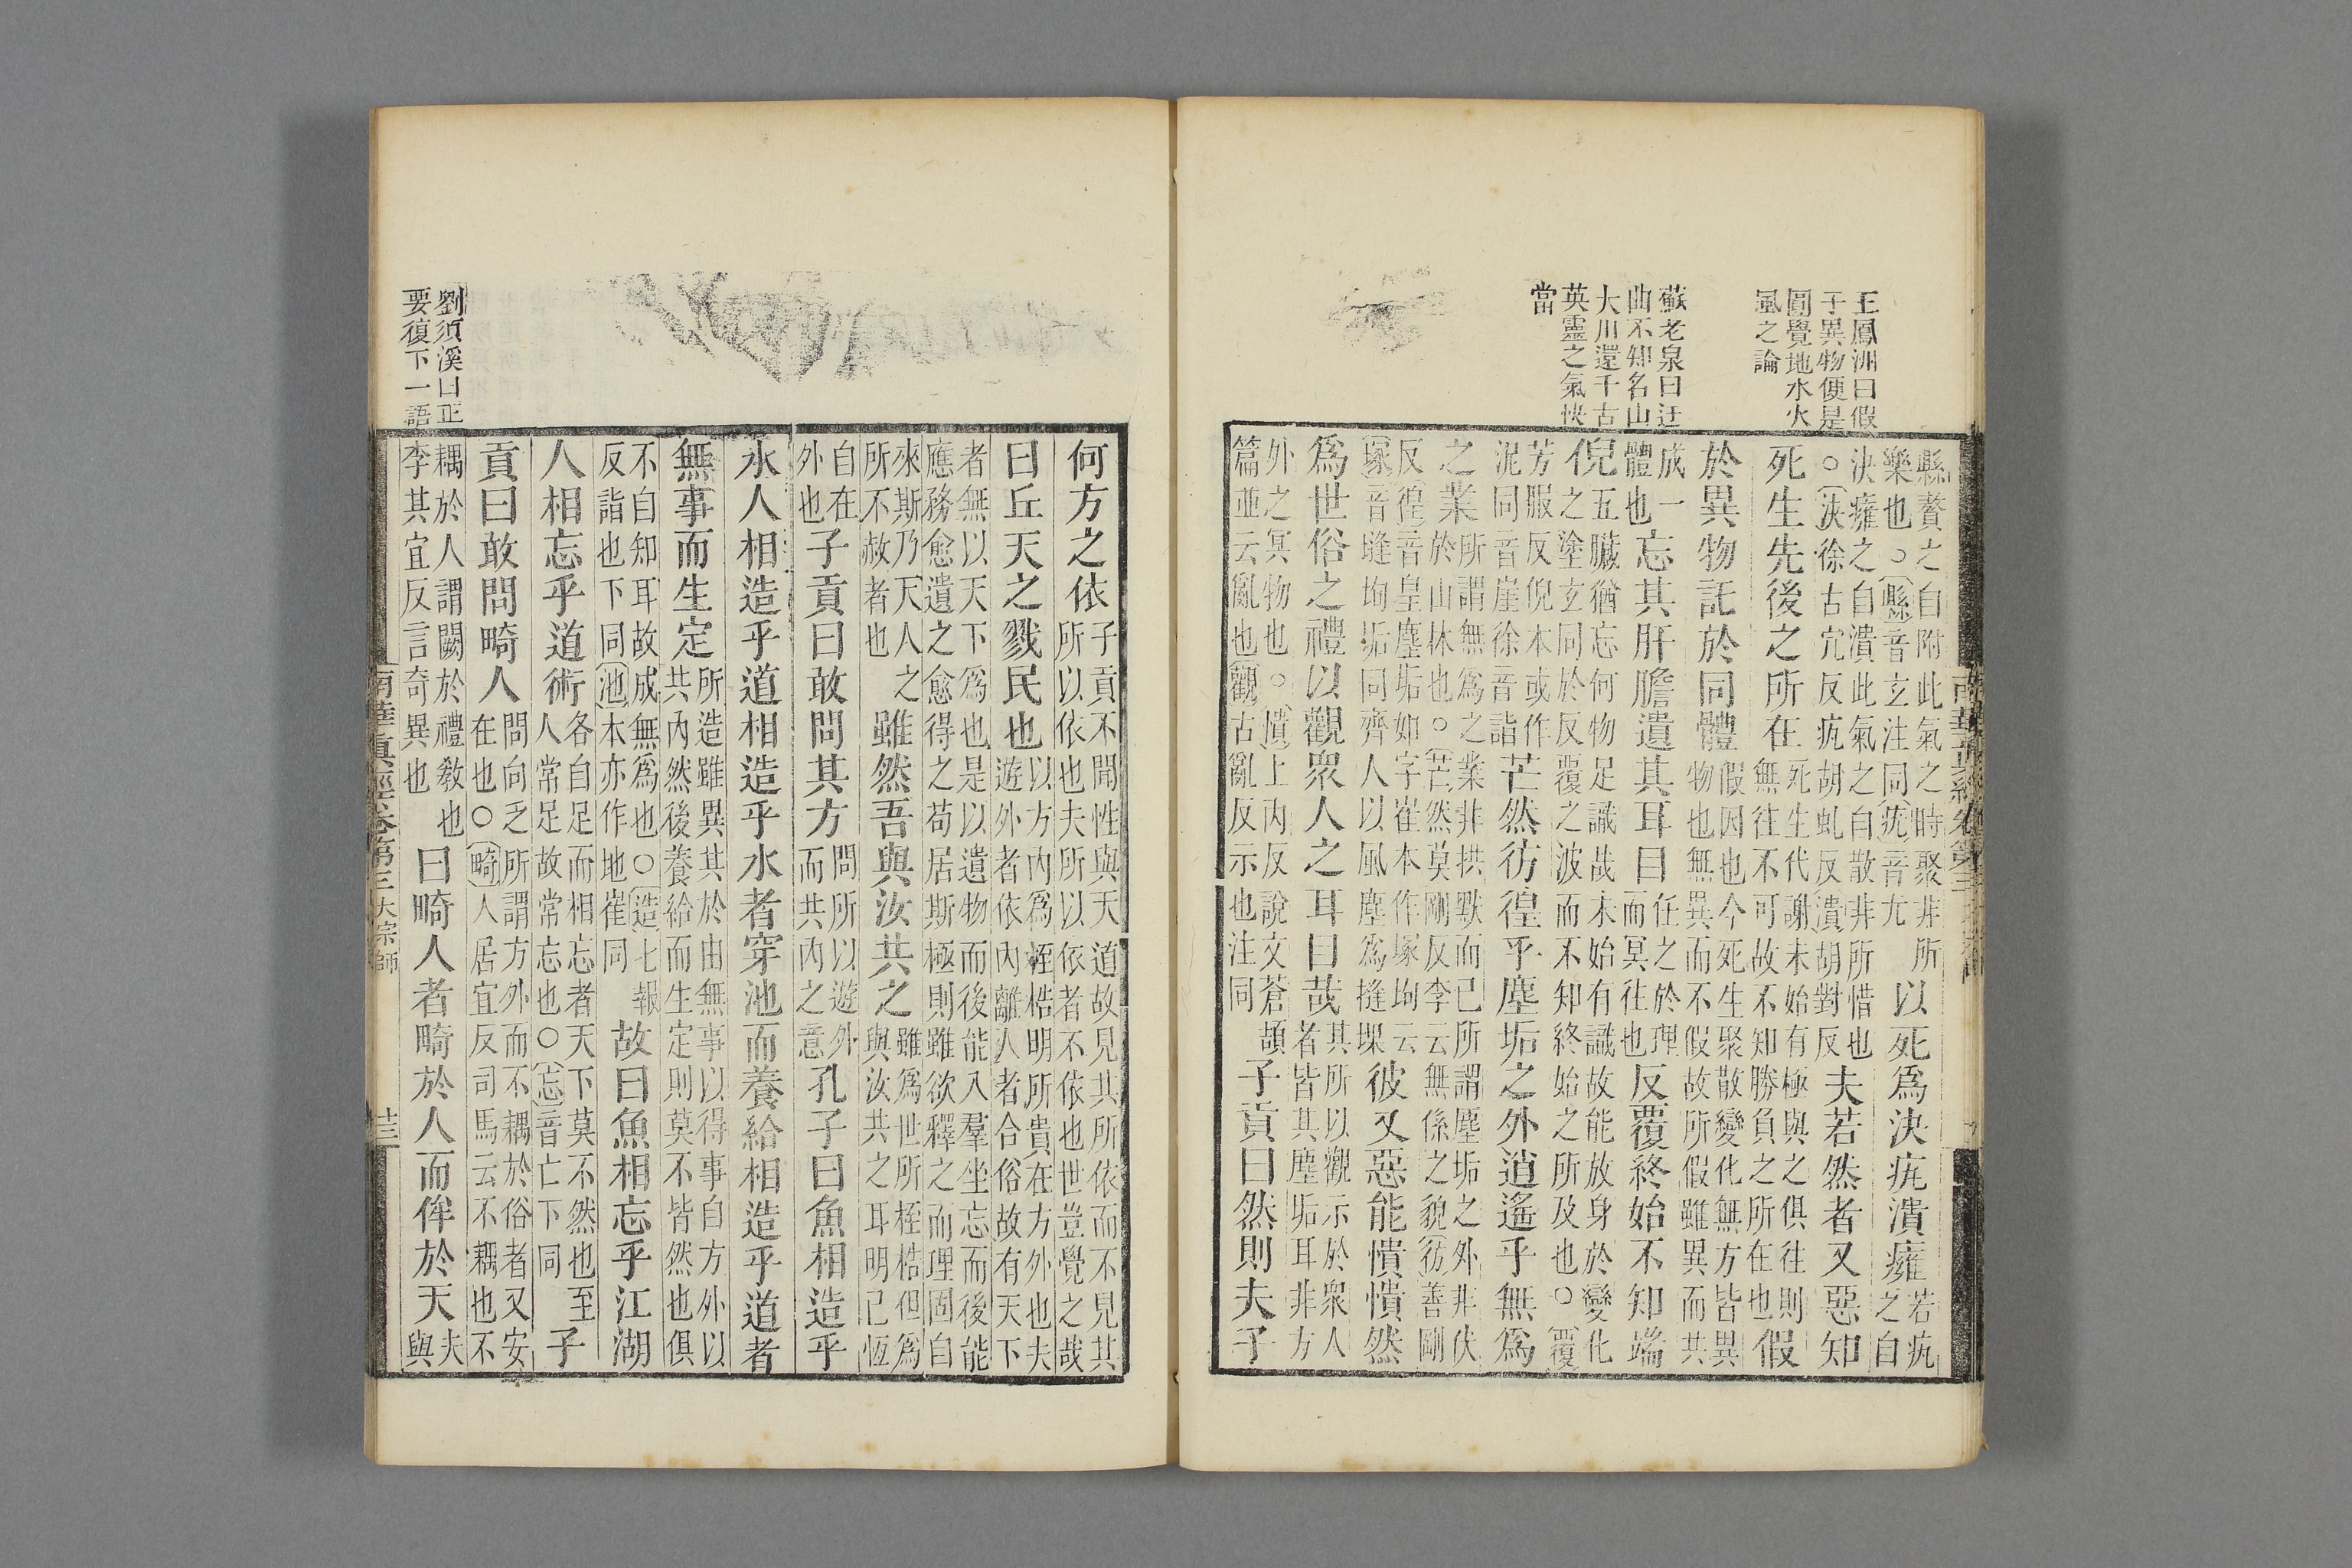 王鳳洲曰假
于異物便是
圓覺地水火
風之論
蘇老泉曰迂
曲不知名山
大川還千古
英靈之氣快
當
縣贅之自附此氣之時聚非所樂也○縣音玄注同疣音尤以死爲決疣潰癰若疣之自
決癰之自潰此氣之自散非所惜也○決徐古穴反疣胡虬反潰胡對反夫若然者又惡知
死生先後之所在死生代謝未始有極與之俱往則無往不可故不知勝負之所在也假
於異物託於同體假因也今死生聚散變化無方皆異物也無異而不假故所假雖異而共
成一體也忘其肝膽遺其耳目任之於理而冥往也反覆終始不知端
倪五臟猶忘何物足識哉未始有識故能放身於變化之塗玄同於反覆之波而不知終始之所及也○覆
芳服反倪本或作泥同音崖徐音詣芒然彷徨乎塵垢之外逍遙乎無爲
之業所謂無爲之業非拱默而已所謂塵垢之外非伏於山林也○芒然莫剛反李云無係之貌彷善剛
反徨音皇塵垢如字崔本作塚坸云塚音塳坸垢同齊人以風塵爲塳堁彼又惡能憒憒然
爲世俗之禮以觀衆人之耳目哉其所以觀示於衆人者皆其塵垢耳非方
外之冥物也○憒上內反說文蒼頡篇並云亂也觀古亂反示也注同子貢曰然則夫子
何方之依子貢不聞性與天道故見其所依而不見其所以依也夫所以依者不依也世豈覺之哉
曰丘天之戮民也以方內爲桎梏明所貴在方外也夫遊外者依內離人者合俗故有天下
者無以天下爲也是以遺物而後能入羣坐忘而後能應務愈遺之愈得之苟居斯極則雖欲釋之而理固自
來斯乃天人之所不赦者也雖然吾與汝共之雖爲世所桎梏但爲與汝共之耳明己恆
自在外也子貢曰敢問其方問所以遊外而共內之意孔子曰魚相造乎
水人相造乎道相造乎水者穿池而養給相造乎道者
無事而生定所造雖異其於由無事以得事自方外以共內然後養給而生定則莫不皆然也俱
不自知耳故成無爲也○造七報反詣也下同池本亦作地崔同故曰魚相忘乎江湖
人相忘乎道術各自足而相忘者天下莫不然也至人常足故常忘也○忘音亡下同子
貢曰敢問畸人問向之所謂方外而不耦於俗者又安在也○畸人居宜反司馬云不耦也不
耦於人謂闕於禮敎也李其宜反言奇異也曰畸人者畸於人而侔於天夫與
劉須溪曰正
要復下一語
南華眞經卷第三大宗師
十三